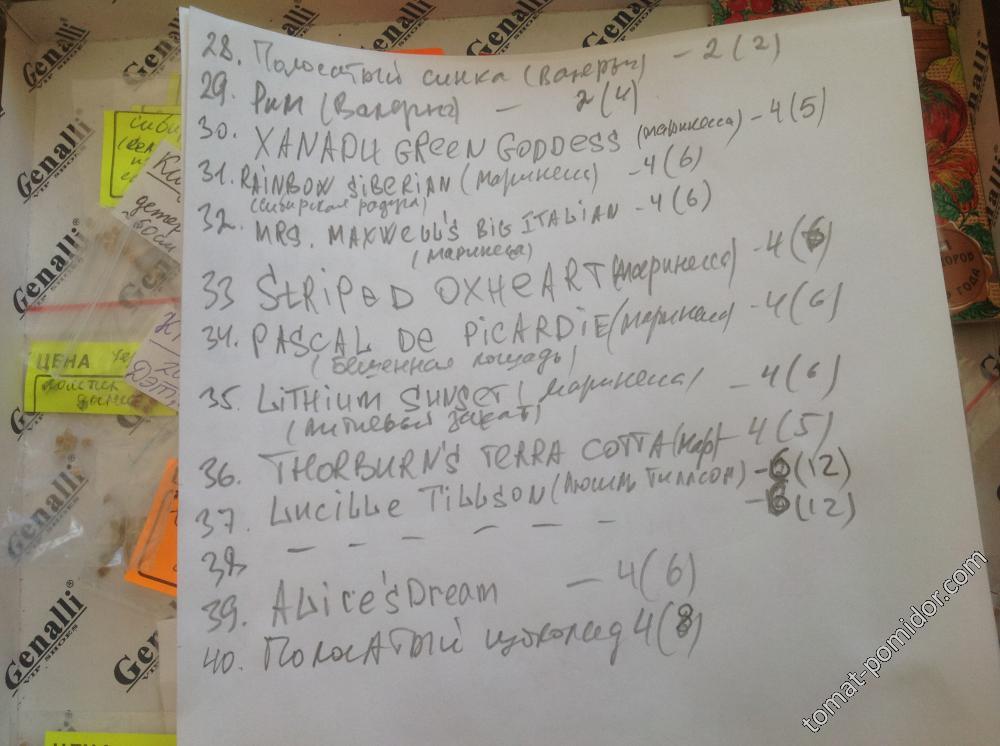 28. Полосатый синка (Валеры) - 2(2)
29. Рим (Валеры) - 2(4)
30. XANADU GREEN GODDESS (маринесса) - 4(5)
31. RAINBOW SIBERIAN (маринесса) - 4(6)
(сибирская радуга)
32. MRS. MAXWELL'S BIG ITALIAN - 4(6)
(маринеса)
33 STRIPED OXHEART (маринесса) - 4(6)
34. PASCAL DE PICARDIE (маринеса) - 4(6)
(бешенная лошадь)
35. LITHIUM SUNSET (маринеса) - 4(6)
(литиевый закат)
36. THORBURN'S TERRA COTTA (мар) - 4(5)
37. LUCILLE TILLSON (Люсиль Тиллсон) - 6(12)
38 - - - - - - - 6(12)
39. ALICE'S Dream - 4(6)
40. Полосатый шоколад 4(8)
Genalli
VIP SHOES
ЦЕНА
tomat-pomidor.com